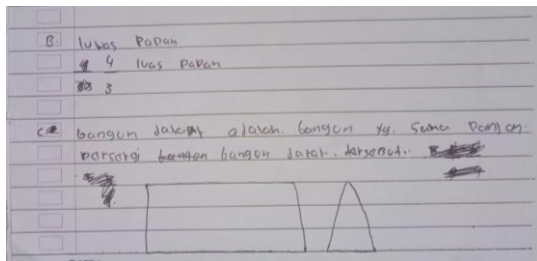 B. luwas papan
4 luas papan
3
C. bangun datar adalah. bangun yg. sama panjan.
persergi bangun datar. tersebut..